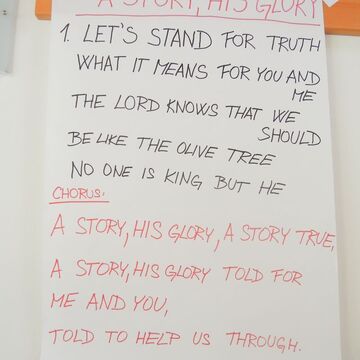 A STORY, HIS GLORY
1. LET'S STAND FOR TRUTH
WHAT IT MEANS FOR YOU AND
ME
THE LORD KNOWS THAT WE
SHOULD
BE LIKE THE OLIVE TREE
NO ONE IS KING BUT HE
CHORUS:
A STORY, HIS GLORY, A STORY TRUE,
A STORY, HIS GLORY TOLD FOR
ME AND YOU,
TOLD TO HELP US THROUGH.